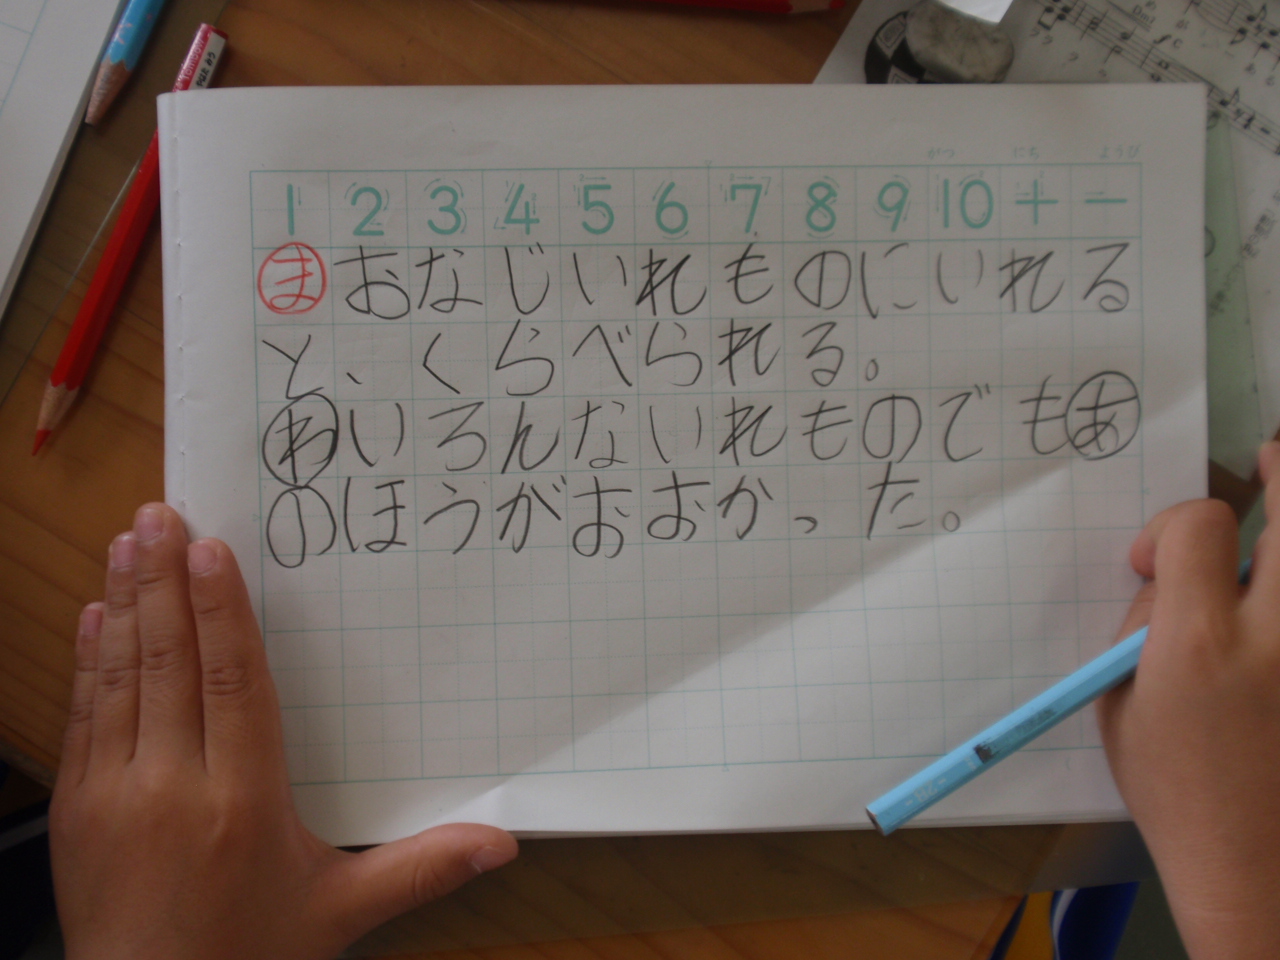 がつ にち ようび
1 2 3 4 5 6 7 8 9 10 + −
まおなじいれものにいれる
と、くらべられる。
わいろんないれものでもあ
のほうがおおかった。